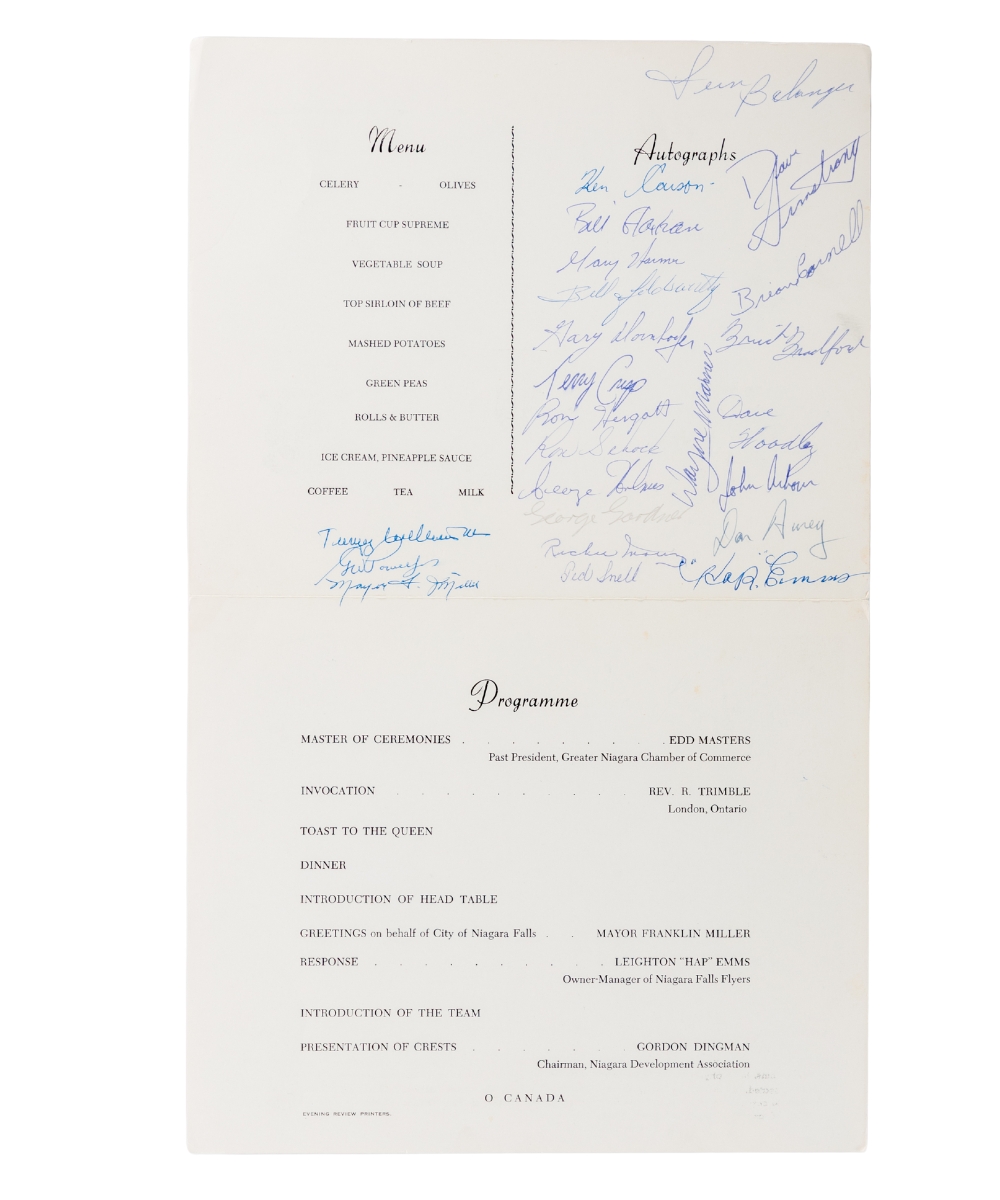 Belanger
Menu
Autographs
CELERY - OLIVES
FRUIT CUP SUPREME
VEGETABLE SOUP
TOP SIRLOIN OF BEEF
MASHED POTATOES
GREEN PEAS
ROLLS & BUTTER
ICE CREAM, PINEAPPLE SAUCE
COFFEE TEA MILK
Ken Carson
Bill
Gary Harmer
Bill Goldsworthy
Gary Dornhoefer
Terry Crisp
Ron Hergott
Ron Schock
George
George Gardner
Richie
Pid Snell
Wayne Maxner
Dave Armstrong
Brian Cornell
Bradford
Dave Woodley
John Arbour
Don Awrey
"Hap" Emms
Mayor F. J Miller
Programme
MASTER OF CEREMONIES . . . . . . . . . EDD MASTERS
Past President, Greater Niagara Chamber of Commerce
INVOCATION . . . . . . . . . . REV. R. TRIMBLE
London, Ontario
TOAST TO THE QUEEN
DINNER
INTRODUCTION OF HEAD TABLE
GREETINGS on behalf of City of Niagara Falls . . MAYOR FRANKLIN MILLER
RESPONSE . . . . . . . . . . LEIGHTON "HAP" EMMS
Owner-Manager of Niagara Falls Flyers
INTRODUCTION OF THE TEAM
PRESENTATION OF CRESTS . . . . . . . GORDON DINGMAN
Chairman, Niagara Development Association
O CANADA
EVENING REVIEW PRINTERS.